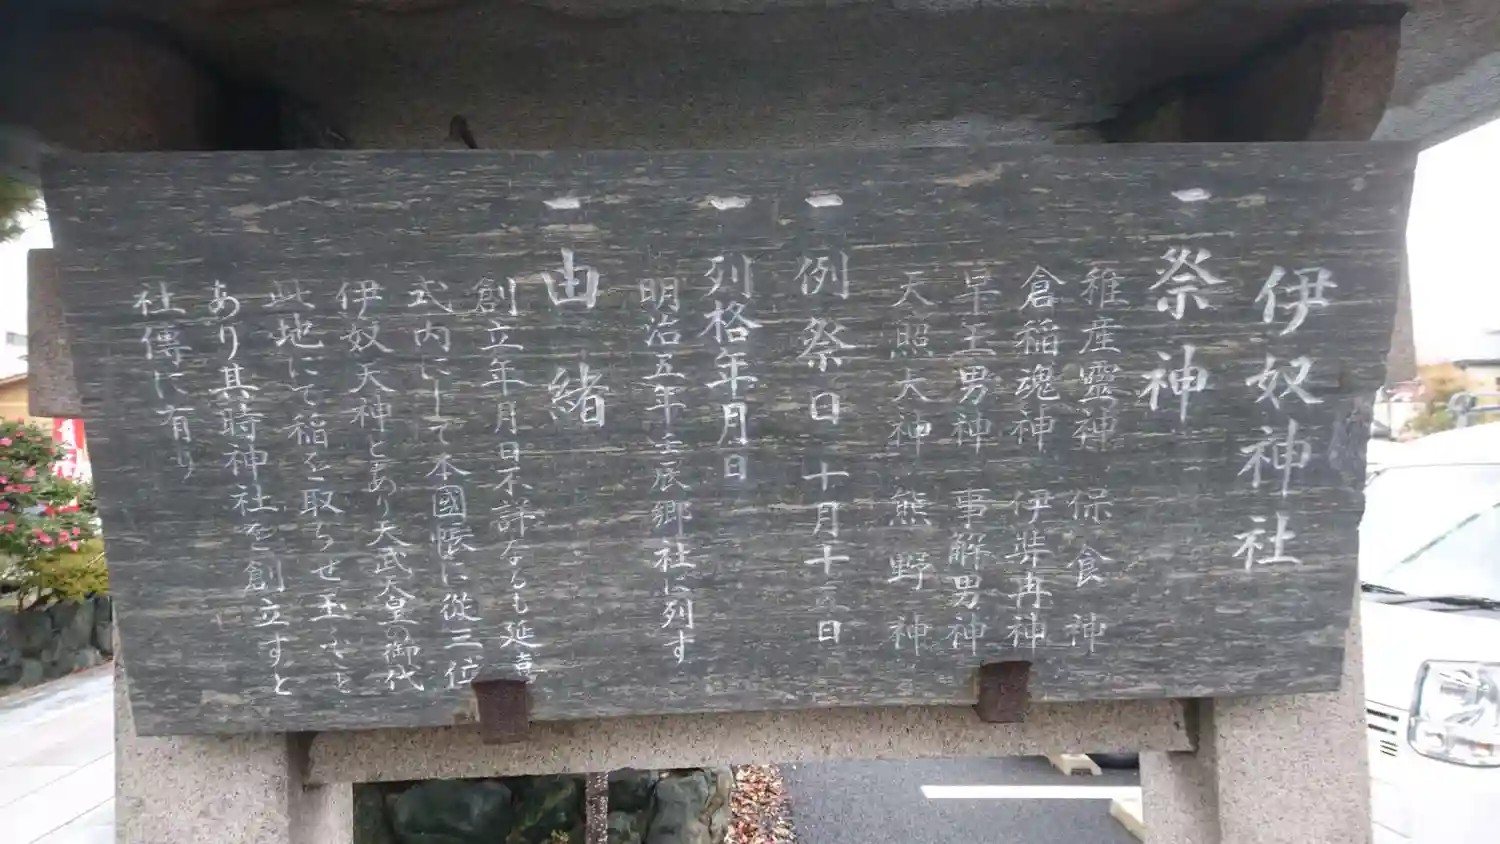 伊奴神社
一 祭神
稚産霊神 保食神
倉稲魂神 伊弉冉神
早玉男神 事解男神
天照大神 熊野神
一 例祭日 十月十二日
一 列格年月日
明治五年壬辰郷社に列す
一 由緒
創立年月日不詳なるも延喜
式内にして本國帳に從三位
伊奴天神とあり天武天皇の御代
此地にて稲を取らせ玉ふこと
あり其時神社を創立すと
社傳に有り